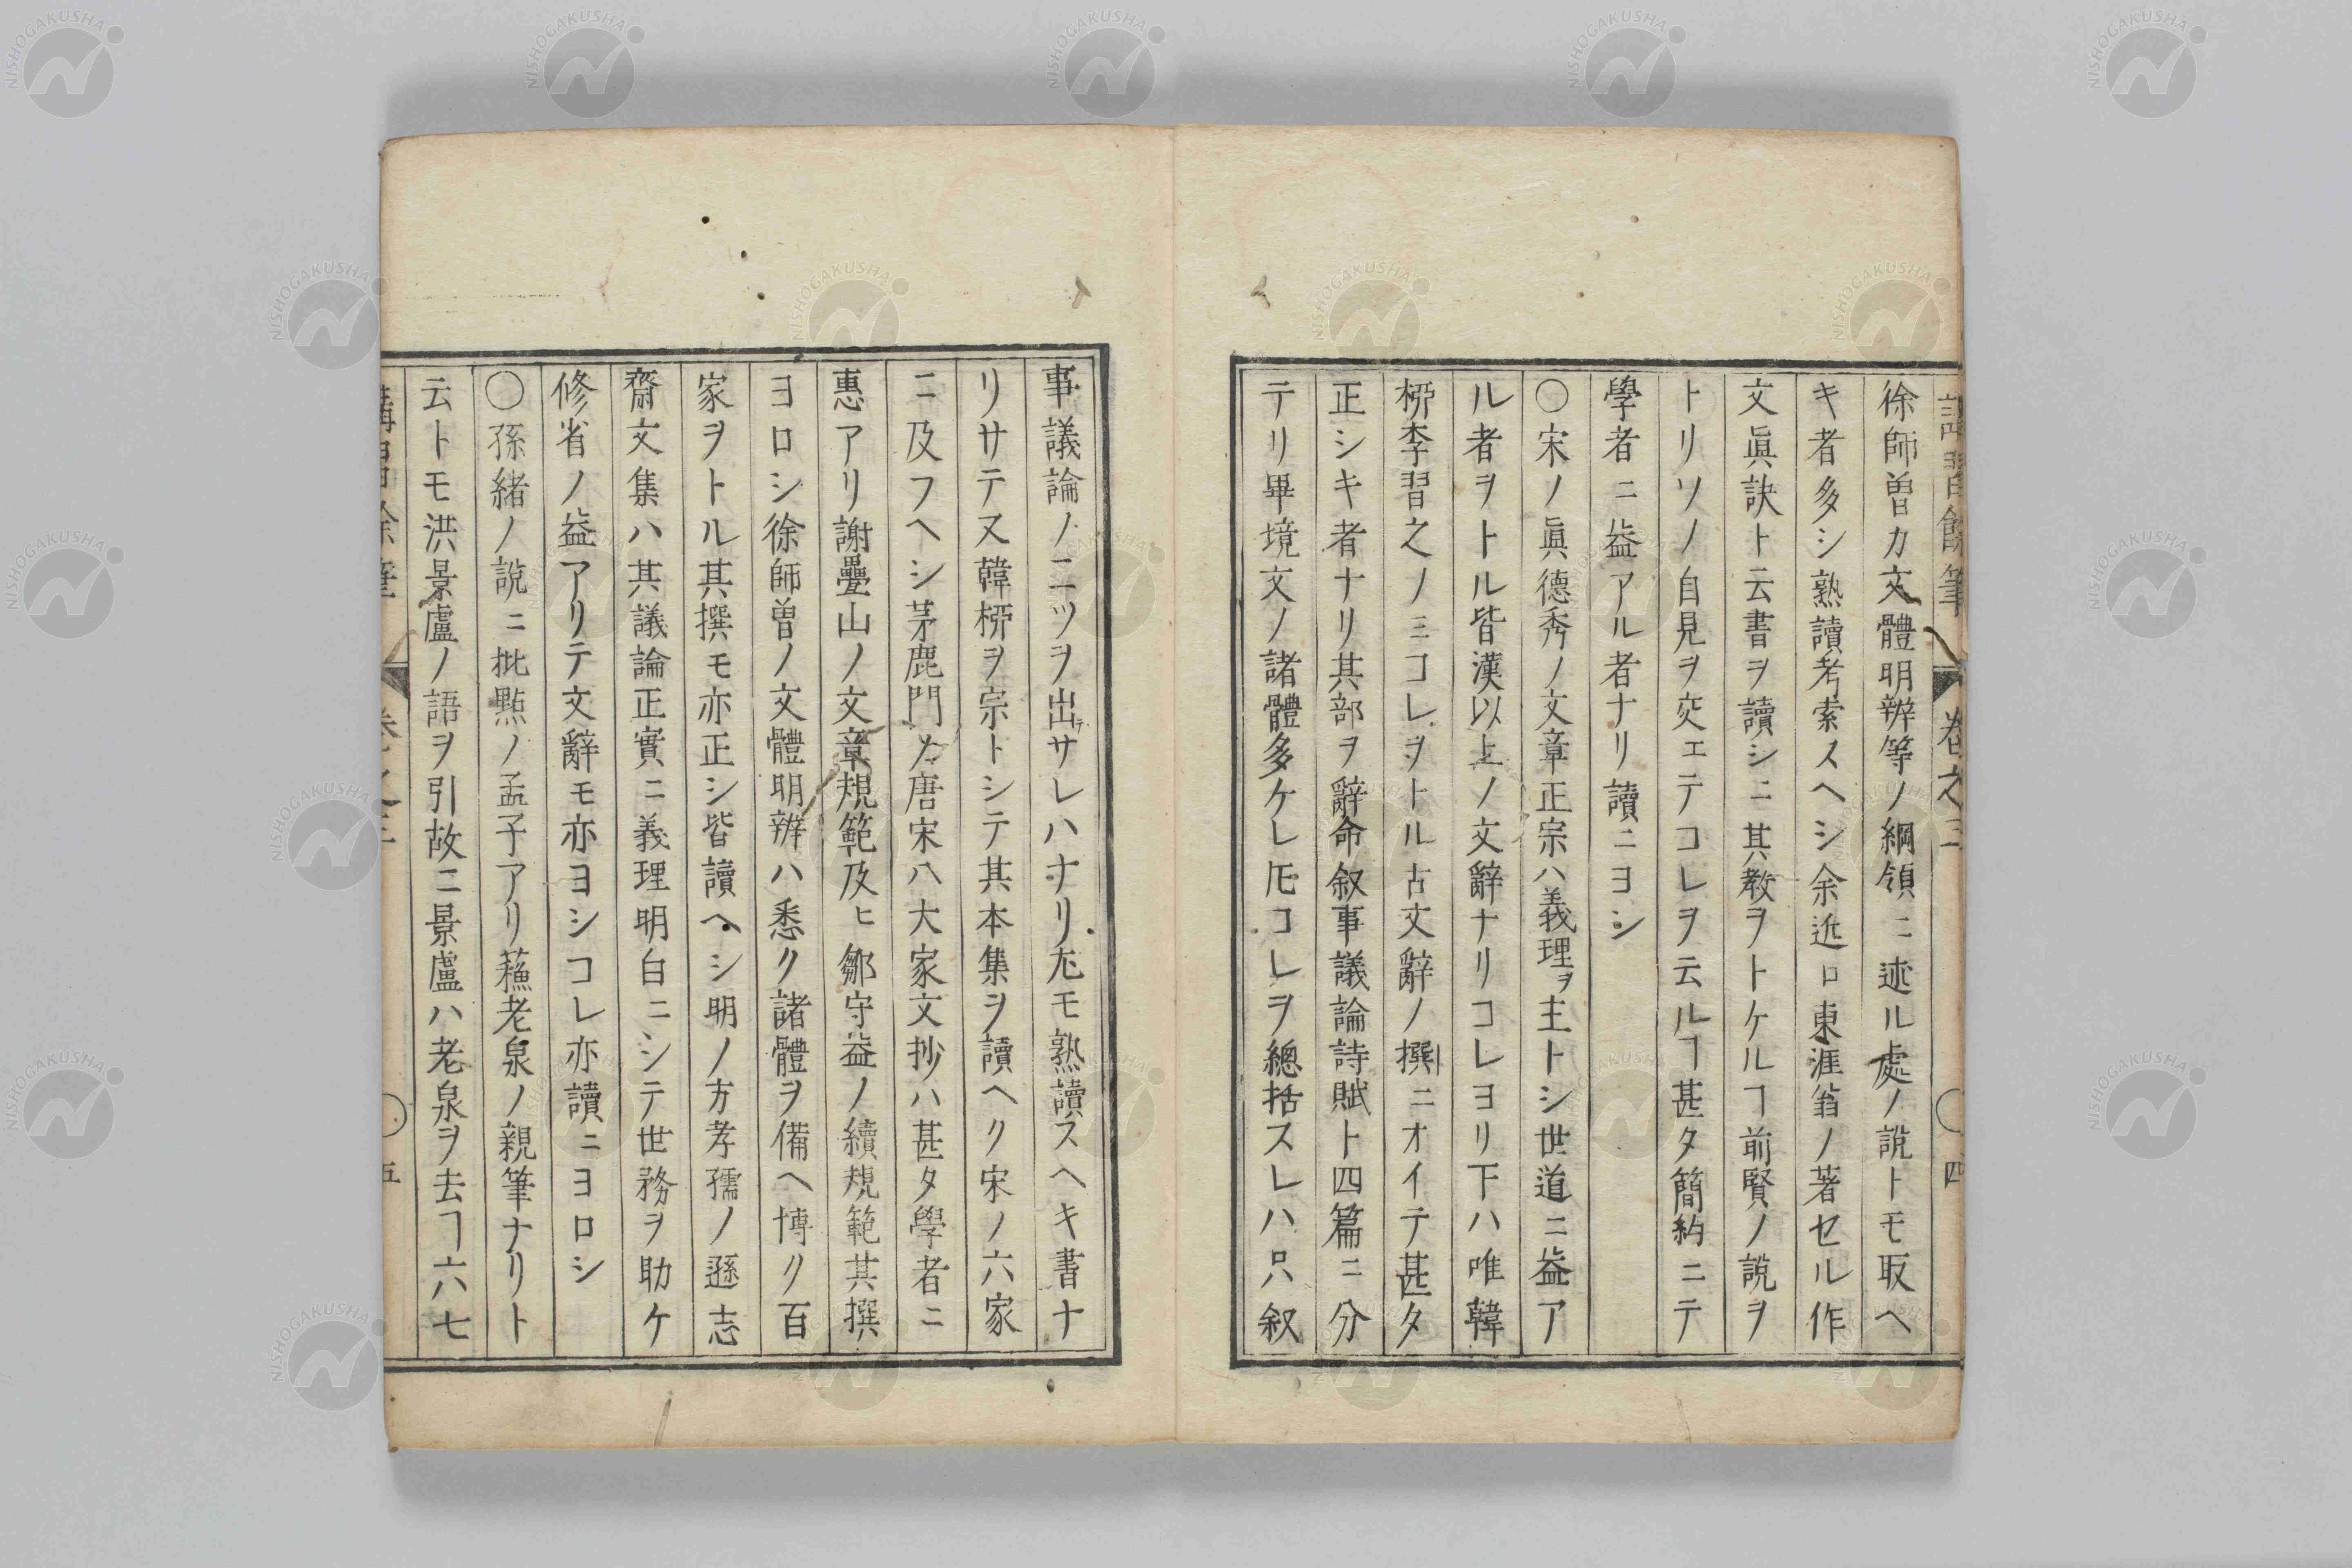 講習餘筆 卷之三 四
徐師曽カ文體明辨等ノ綱領ニ述ル處ノ說トモ取ヘ
キ者多シ熟讀考索スヘシ余近ロ東涯翁ノ著セル作
文眞訣ト云書ヲ讀シニ其教ヲトケルヿ前賢ノ說ヲ
トリソノ自見ヲ交エテコレヲ云ルヿ甚タ簡約ニテ
學者ニ益アル者ナリ讀ニヨシ
〇宋ノ眞德秀ノ文章正宗ハ義理ヲ主トシ世道ニ益ア
ル者ヲトル皆漢以上ノ文辭ナリコレヨリ下ハ唯韓
栁李習之ノミコレヲトル古文辭ノ撰ニオイテ甚タ
正シキ者ナリ其部ヲ辭命叙事議論詩賦ト四篇ニ分
テリ畢境文ノ諸體多ケレ𪜈コレヲ總括スレハ只叙
事議論ノニツヲ出テサレハナリ尤モ熟讀スヘキ書ナ
リサテ又韓栁ヲ宗トシテ其本集ヲ讀ヘク宋ノ六家
ニ及フヘシ茅鹿門カ唐宋八大家文抄ハ甚タ學者ニ
惠アリ謝疊山ノ文章規範及ヒ鄒守益ノ續規範其撰
ヨロシ徐師曽ノ文體明辨ハ悉ク諸體ヲ備ヘ博ク百
家ヲトル其撰モ亦正シ皆讀ヘシ明ノ方孝孺ノ遜志
齋文集ハ其議論正實ニ義理明白ニシテ世務ヲ助ケ
修省ノ益アリテ文辭モ亦ヨシコレ亦讀ニヨロシ
〇孫緒ノ說ニ批點ノ孟子アリ蘓老泉ノ親筆ナリト
云トモ洪景盧ノ語ヲ引故ニ景盧ハ老泉ヲ去ヿ六七
講習餘筆 卷之三 五
NISHOGAKUSHA